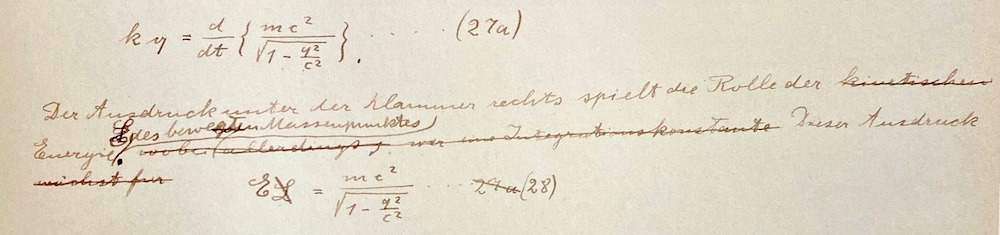 k q = d/dt { mc² / √(1 − q²/c²) }. . . . . (27a)
Der Ausdruck unter der Klammer rechts spielt die Rolle der kinetischen
des bewegten Massenpunktes
Energie, wobei (allerdings Integrationskonstante Dieser Ausdruck
wächst für
E L = mc² / √(1 − q²/c²) . . . 27a (28)